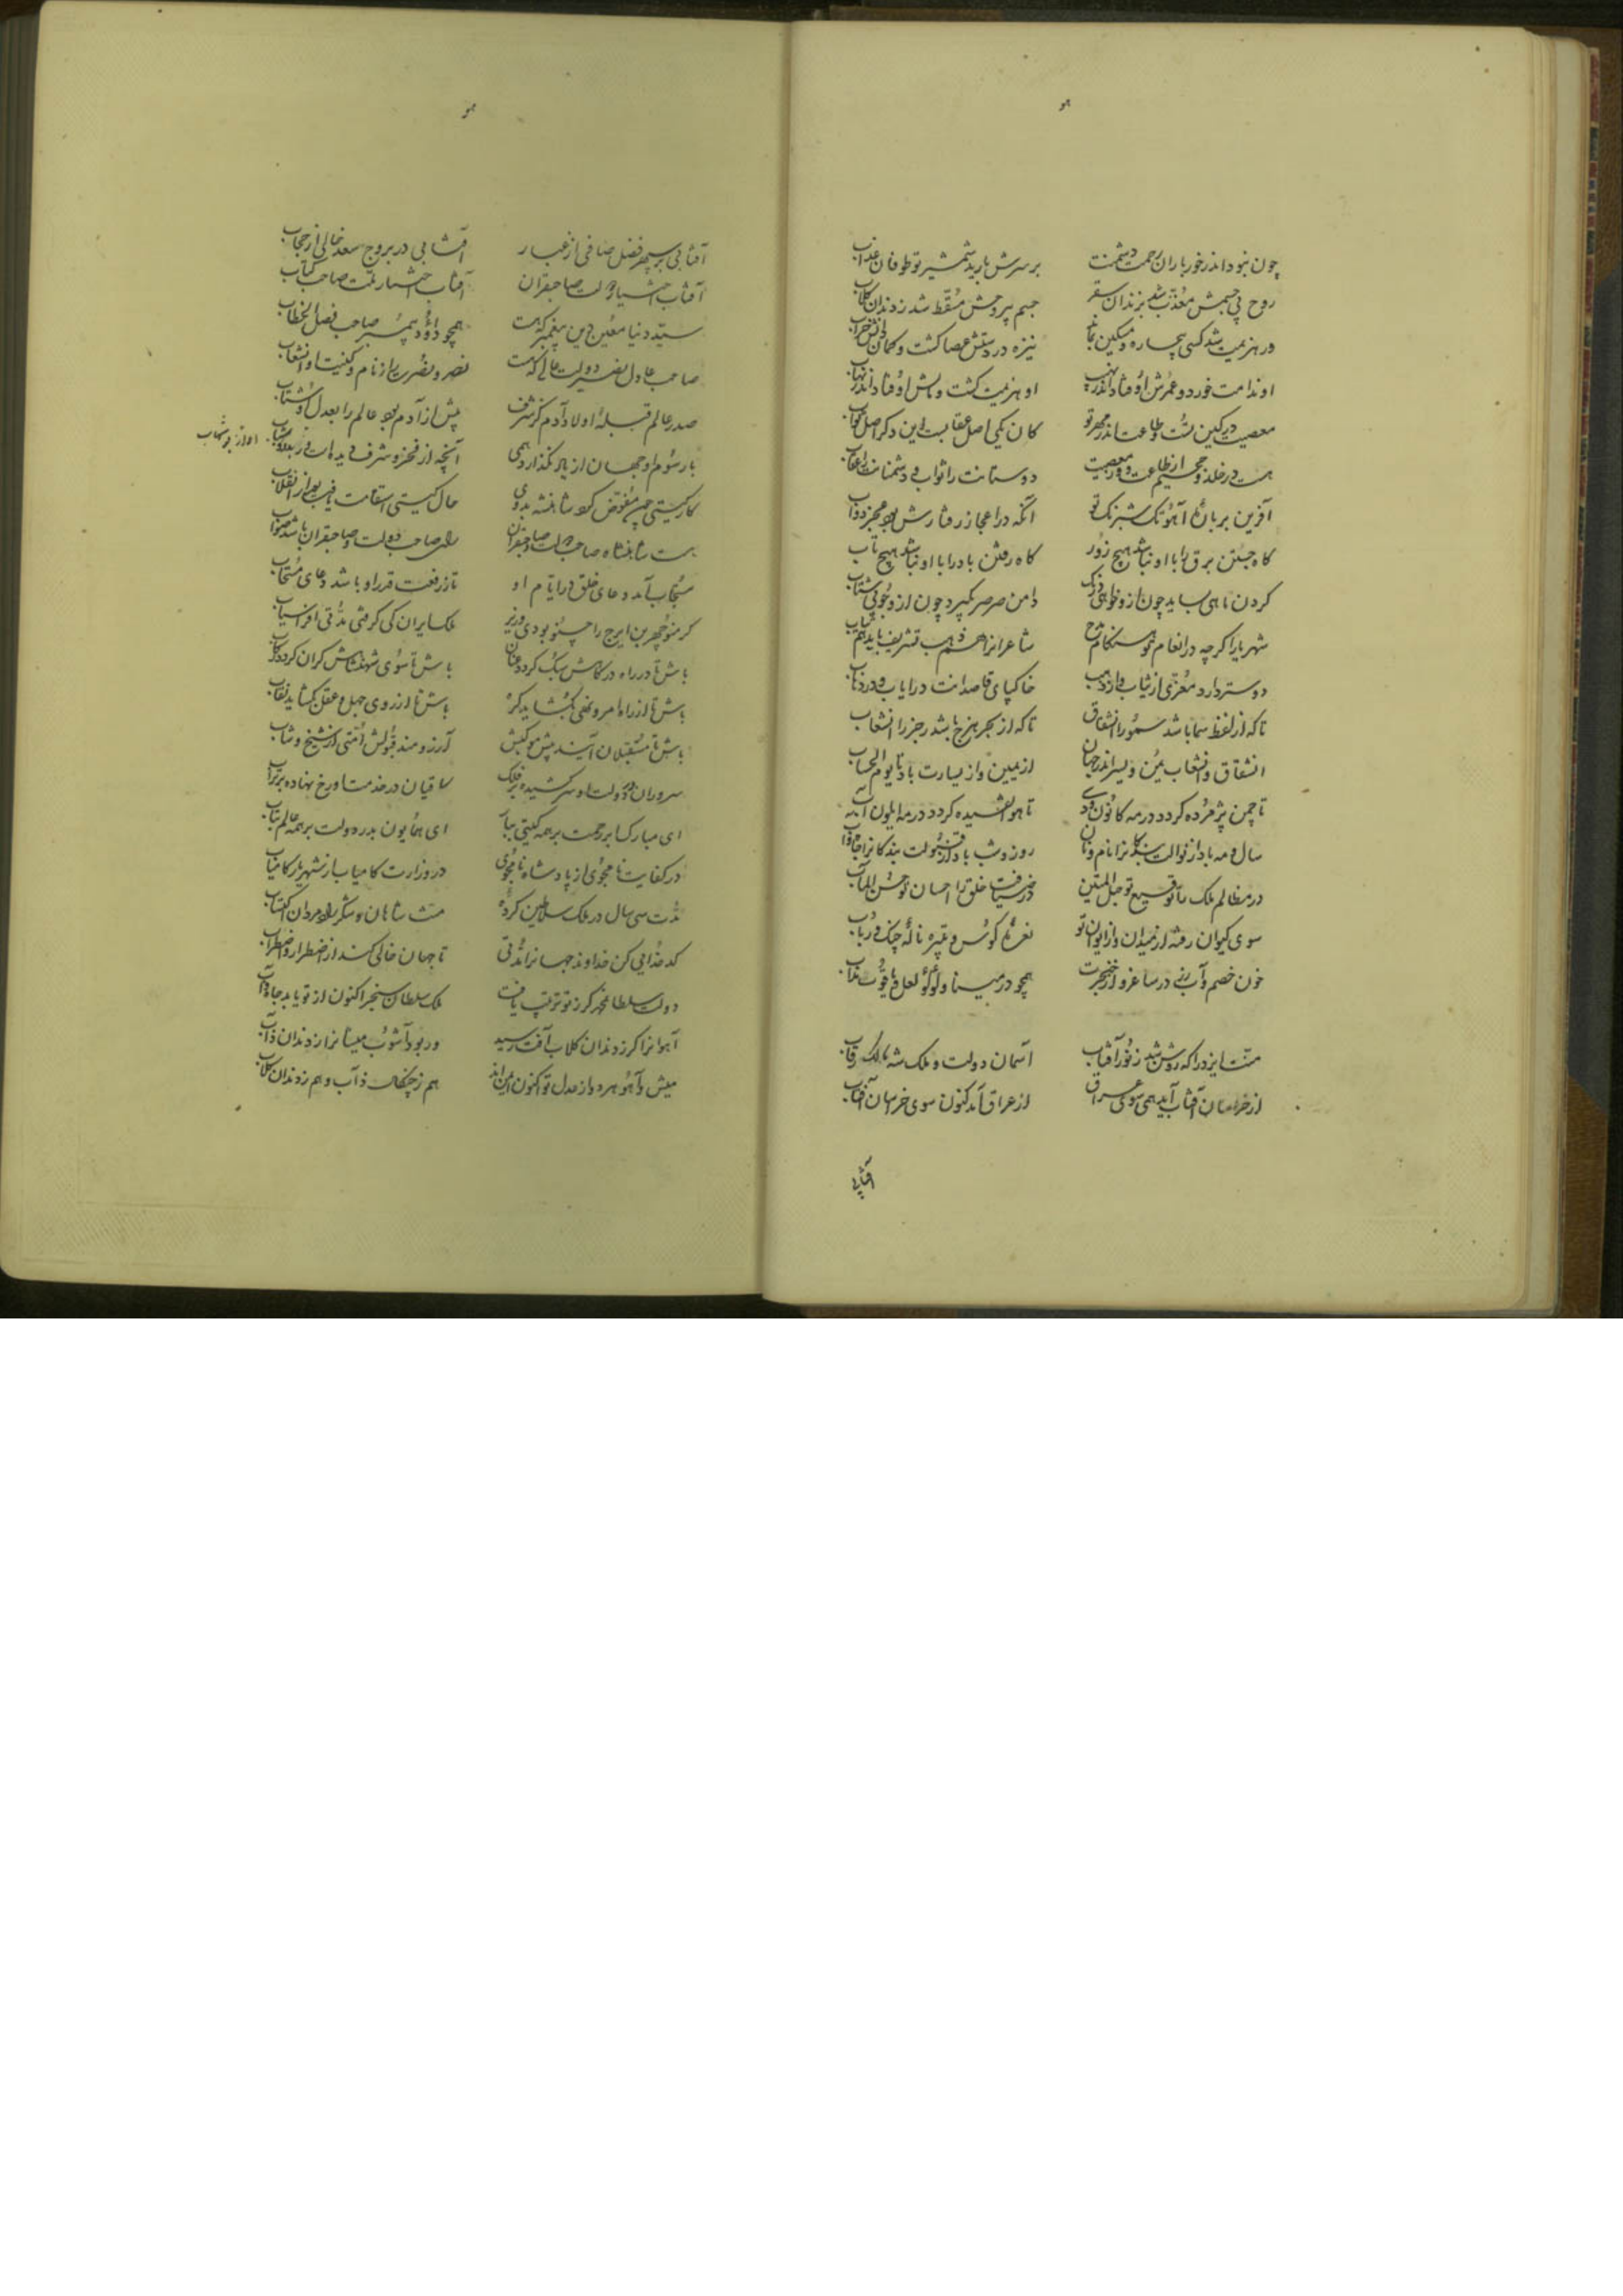 هو
چون نبود اندر خور باران رحمت دشمنت
بر سرش بارید شمشیر تو طوفان عذاب
روح بی جسمش معذب شد بزندان سقر
جسم بی روحش مسقط شد زدندان کلاب
در هزیمت شد کسی بیچاره و مسکین بماند
نیزه در دستش عصا کشت و کمان
او ندامت خورد و عمرش اوفتاد اندر نهیب
او هزیمت کشت و اوفتاد اندر نهاب
معصیت در کین تست و طاعت اندر مهر تو
کان یکی اصل عقابست این دکر اصل ثواب
هست در خلد و جحیم از طاعت و از معصیت
دوستانت را ثواب و دشمنانت را عقاب
آفرین بر بارهٔ آهو تک شبرنک تو
آنکه در اعجاز رفتارش بود معجز دواب
کاه جستن برق را با او نباشد هیچ زور
کاه رفتن باد را با او نباشد هیچ تاب
کردن ماهی بساید چون ازو خواهی درنک
دامن صرصر بگیرد چون ازو جوئی شتاب
شهریارا کرچه در انعام تو هنکام مدح
شاعرانرا هم ذهب تشریف باید هم ثیاب
دوستر دارد معزی از ثیاب و از ذهب
خاکپای قاصدانت در ایاب و در ذهاب
تا که از لفظ سما باشد سمو را انشقاق
تا که از بحر هزج باشد رجز را انشعاب
انشقاق و انشعاب یمن و یسر اندر جهان
از یمین و از یسارت باد تا یوم الحساب
تا چمن پژمرده کردد در مه کانون و دی
تا هوا تفسیده کردد در مه ایلول و آب
سال و مه باد از نوالت سایلانرا نام و نان
روز و شب باد از قبولت بندکانرا جاه و آب
در مظالم ملک را توقیع تو حبل المتین
در ضیافت خلق را احسان تو حسن المآب
سوی کیوان رفته از میدان و از ایوان تو
نعرهٔ کوس و تبیره نالهٔ چنک و رباب
خون خصم و آب رز در ساغر و از خنجرت
همچو در مینا و لؤلؤ لعل و یاقوت مذاب
منت ایزد را که روشن شد ز نور آفتاب
آسمان دولت و ملک شه مالک رقاب
از خراسان آفتاب آید همی سوی عراق
از عراق آمد کنون سوی خراسان آفتاب
آفتابی
هو
آفتابی بر سپهر فضل صافی از غبار
آفتابی در بروج سعد خالی از حجاب
آفتاب اختیار دولت صاحبقران
آفتاب افتخار ملت صاحب کتاب
سید دنیا معین دین پیغمبر که هست
همچو داود پیمبر صاحب فصل الخطاب
صاحب عادل نصیر دولت عالی که هست
نصر و نصرت را ز نام و کنیت او انشعاب
صدر عالم قبلهٔ اولاد آدم کز شرف
پیش از آدم بود عالم را بعدل او شتاب
با رسوم او جهان از یاد نگذارد همی
آنچه از فخر و شرف دیدهاست
کار گیتی چون مفوض کرد شاهنشه بدو
حال گیتی استقامت یافت بعد از انقلاب
هست شاهنشاه صاحب دولت و صاحبقران
رای صاحب دولت و صاحبقران باشد صواب
مستجاب آمد دعای خلق در ایام او
تا ز رفعت قدر او باشد دعای مستجاب
کر منوچهر بن ایرج را چنو بودی وزیر
ملک ایران کی کرفتی مدتی افراسیاب
باش تا در راه در کامش سبک کردد عنان
باش تا سوی شهنشاهش کران کردد رکاب
باش تا از راه امر و نهی بگشاید کره
باش تا از روی جهل و عقل بگشاید نقاب
باش تا مستقبلان آیند پیش موکبش
آرزومند قبولش امتی از شیخ و شاب
سروران در دولت او سر کشیده بر فلک
ساقیان در خدمت او رخ نهاده بر تراب
ای مبارک ابر رحمت بر همه گیتی ببار
ای همایون بدر دولت بر همه عالم بتاب
در کفایت نامجوی از پادشاه نامجوی
در وزارت کامیاب از شهریار کامیاب
مدت سی سال در ملک سلاطین کرده
منت شاهان و شکر رادمردان اکتساب
کدخدایی کن خداوند جهانرا مدتی
تا جهان خالی کند از اضطرار و اضطراب
دولت سلطان محمد کر ز تو ترتیب یافت
ملک سلطان سنجر اکنون از تو یابد جاه و آب
آهوانرا کر ز دندان کلاب آفت رسید
ور بود آشوب میشانرا ز دندان ذآب
میش و آهو هر دو از عدل تو اکنون ایمن اند
هم ز چنگال ذآب و هم ز دندان کلاب